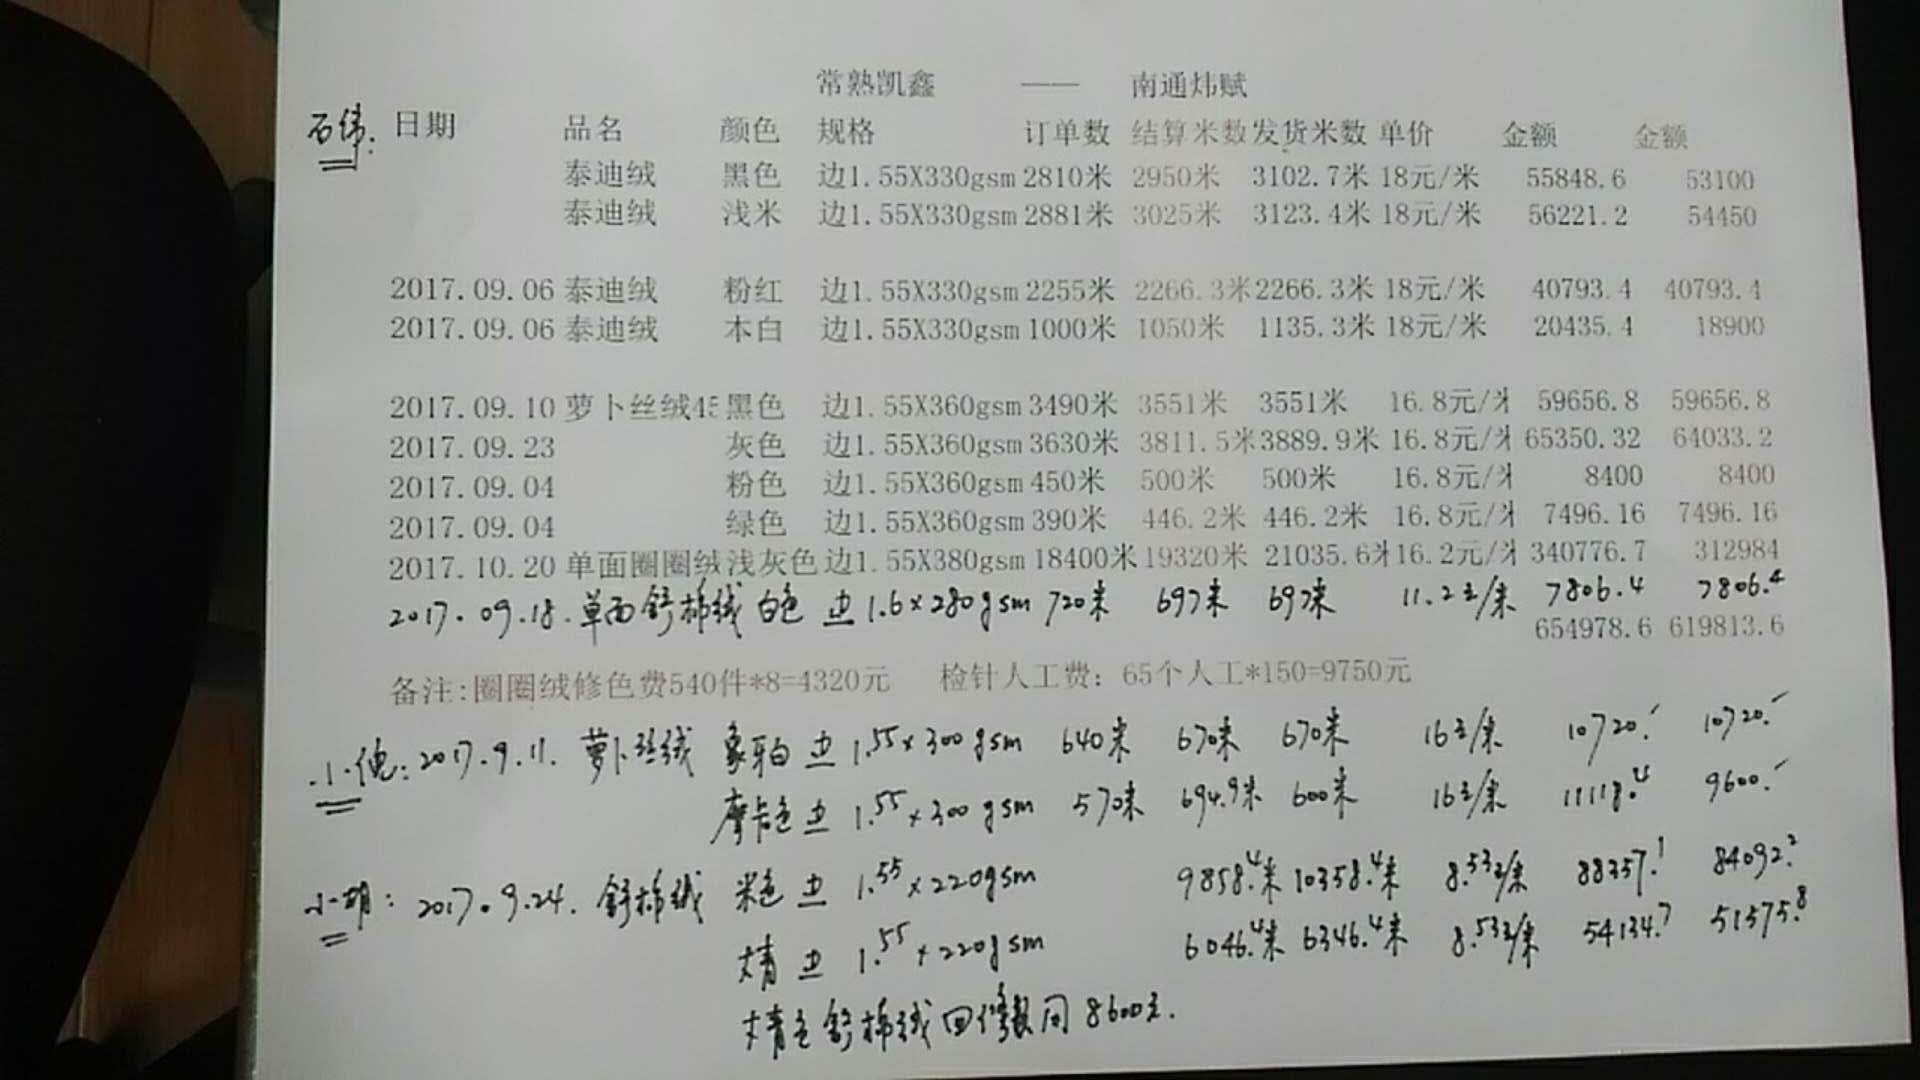 常熟凯鑫 —— 南通炜赋
石纬: 日期 品名 颜色 规格 订单数 结算米数 发货米数 单价 金额 金额
泰迪绒 黑色 边1.55X330gsm 2810米 2950米 3102.7米 18元/米 55848.6 53100
泰迪绒 浅米 边1.55X330gsm 2881米 3025米 3123.4米 18元/米 56221.2 54450
2017.09.06 泰迪绒 粉红 边1.55X330gsm 2255米 2266.3米 2266.3米 18元/米 40793.4 40793.4
2017.09.06 泰迪绒 本白 边1.55X330gsm 1000米 1050米 1135.3米 18元/米 20435.4 18900
2017.09.10 萝卜丝绒45 黑色 边1.55X360gsm 3490米 3551米 3551米 16.8元/米 59656.8 59656.8
2017.09.23 灰色 边1.55X360gsm 3630米 3811.5米 3889.9米 16.8元/米 65350.32 64033.2
2017.09.04 粉色 边1.55X360gsm 450米 500米 500米 16.8元/米 8400 8400
2017.09.04 绿色 边1.55X360gsm 390米 446.2米 446.2米 16.8元/米 7496.16 7496.16
2017.10.20 单面圈圈绒 浅灰色 边1.55X380gsm 18400米 19320米 21035.6米 16.2元/米 340776.7 312984
2017.09.18. 单面舒棉绒 白色 边1.6×280gsm 720米 697米 697米 11.2元/米 7806.4 7806.4
654978.6 619813.6
备注:圈圈绒修色费540件*8=4320元 检针人工费: 65个人工*150=9750元
小倪: 2017.9.11. 萝卜丝绒 象牙白 边1.55×300gsm 640米 670米 670米 16元/米 10720.- 10720.-
摩卡色 边1.55×300gsm 570米 694.9米 600米 16元/米 11118.4 9600.-
小胡: 2017.9.24. 舒棉绒 米色 边1.55×220gsm 9858.4米 10358.4米 8.53元/米 88357.1 84092.2
藏青 边1.55×220gsm 6046.4米 6346.4米 8.53元/米 54134.7 51575.8
色舒棉绒回修费同8600元.